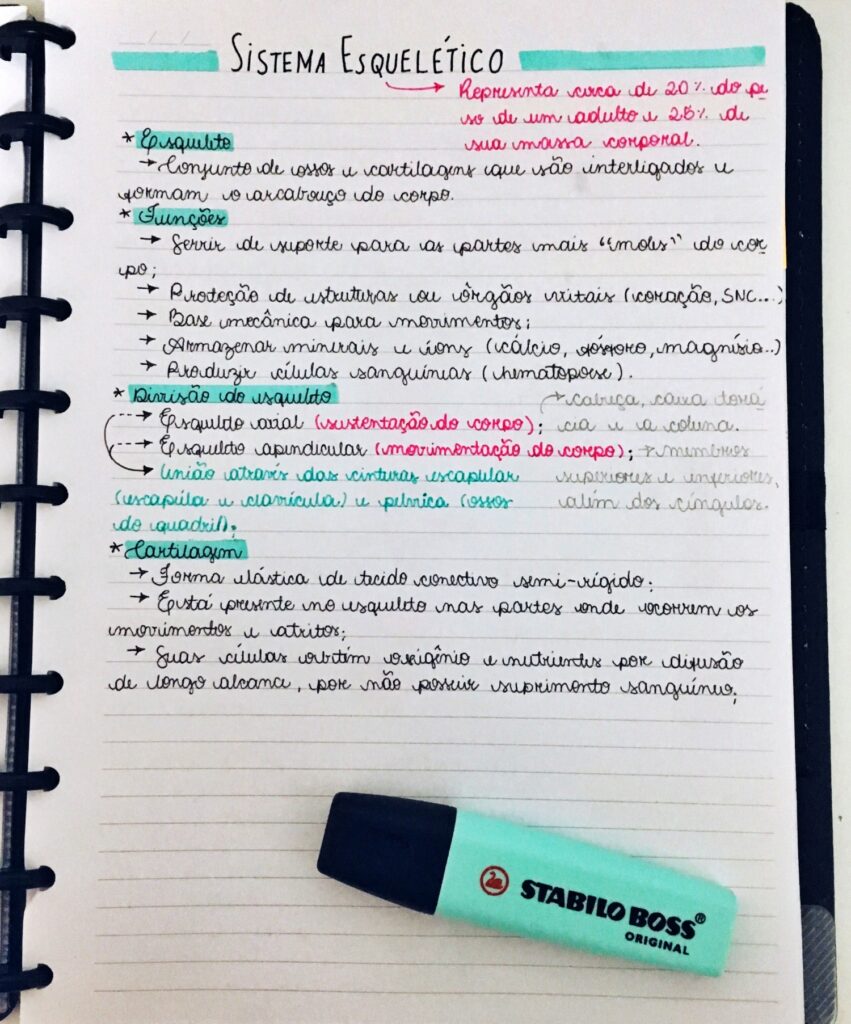 SISTEMA ESQUELÉTICO
→ Representa cerca de 20% do pe
so de um adulto e 25% de
sua massa corporal.
* Esqueleto
→ Conjunto de ossos e cartilagens que são interligados e
formam o arcabouço do corpo.
* Funções
→ Servir de suporte para as partes mais "moles" do cor
po;
→ Proteção de estruturas ou órgãos vitais (coração, SNC...)
→ Base mecânica para movimentos;
→ Armazenar minerais e íons (cálcio, fósforo, magnésio..)
→ Produzir células sanguíneas (hematopoese).
* Divisão do esqueleto
→ Esqueleto axial (sustentação do corpo); → cabeça, caixa torá
cia e a coluna.
→ Esqueleto apendicular (movimentação do corpo); → membros
superiores e inferiores,
além dos cíngulos.
→ União através das cinturas escapular
(escapúla e clavícula) e pélvica (ossos
do quadril);
* Cartilagem
→ Forma elástica de tecido conectivo semi-rígido;
→ Está presente no esqueleto nas partes onde ocorrem os
movimentos e atritos;
→ Suas células obtém oxigênio e nutrientes por difusão
de longo alcance, por não possuir suprimento sanguíneo;
STABILO BOSS®
ORIGINAL